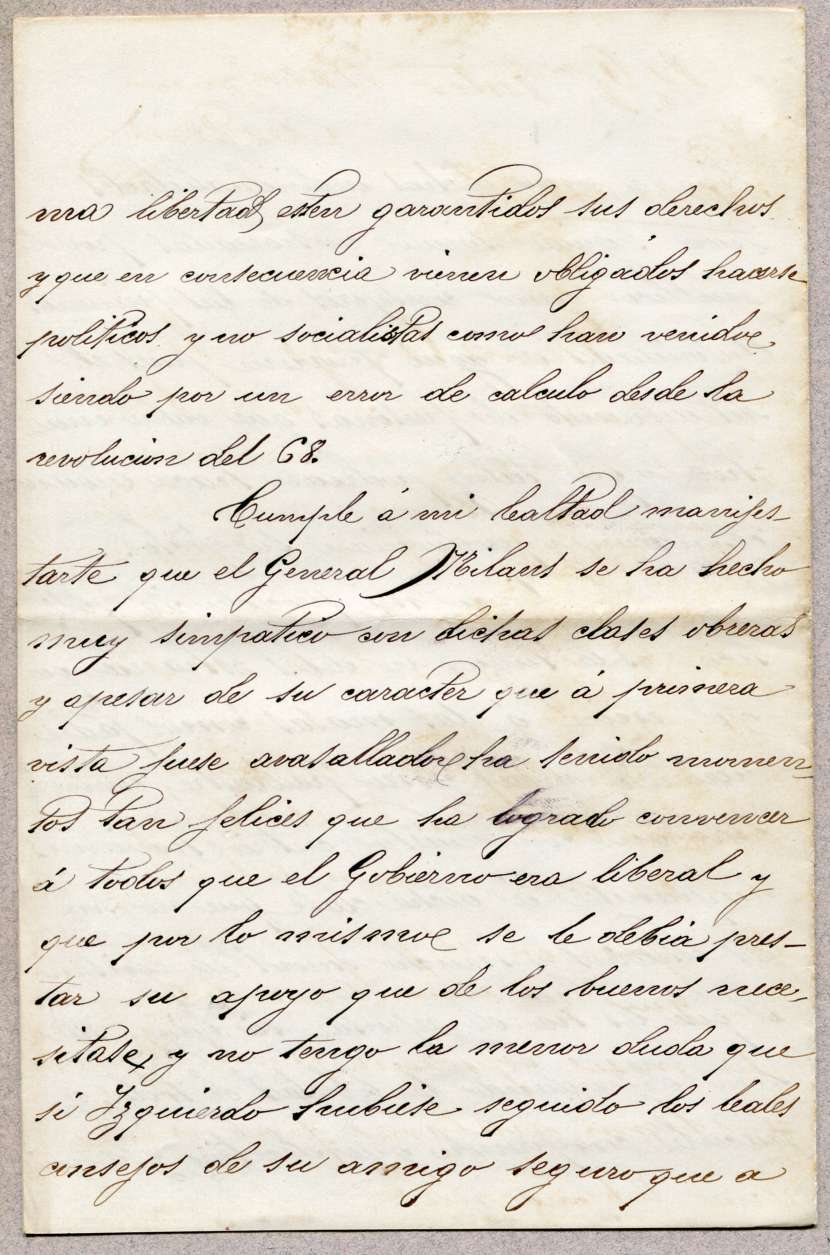 ma libertad, esten garantidos sus derechos
y que en consecuencia vienen obligádos hacerse
politicos y no socialistas como han venido
siendo por un error de calculo desde la
revolucion del 68.
Cumple á mi lealtad manifes-
tarte que el General Milans se ha hecho
muy simpatico con dichas clases obreras
y apesar de su caracter que á primera
vista fuese avasallador ha tenido momen-
tos tan felices que ha logrado convencer
á todos que el Gobierno era liberal y
que por lo mismo se le debia pres-
tar su apoyo que de los buenos nece-
sitase, y no tengo la menor duda que
si Izquierdo hubiese seguido los leales
consejos de su amigo seguro que a